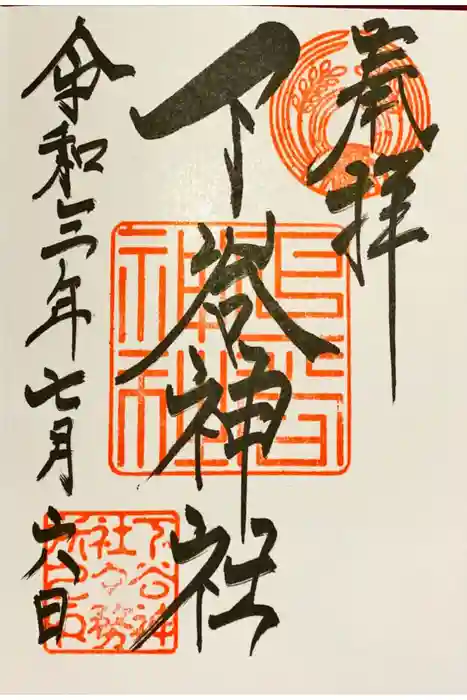 奉拝
下谷神社
令和三年七月六日
下谷神
社々務
所之印